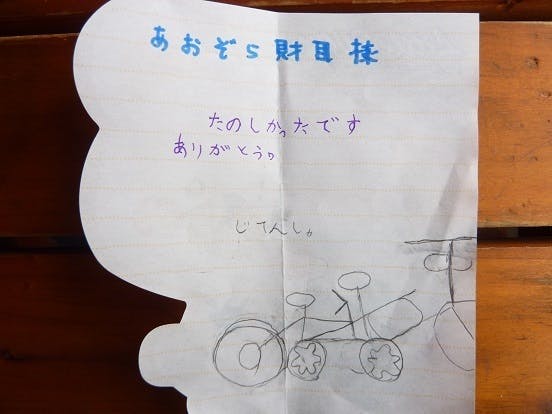 あおぞら財団様
たのしかったです
ありがとう。
じてんしゃ